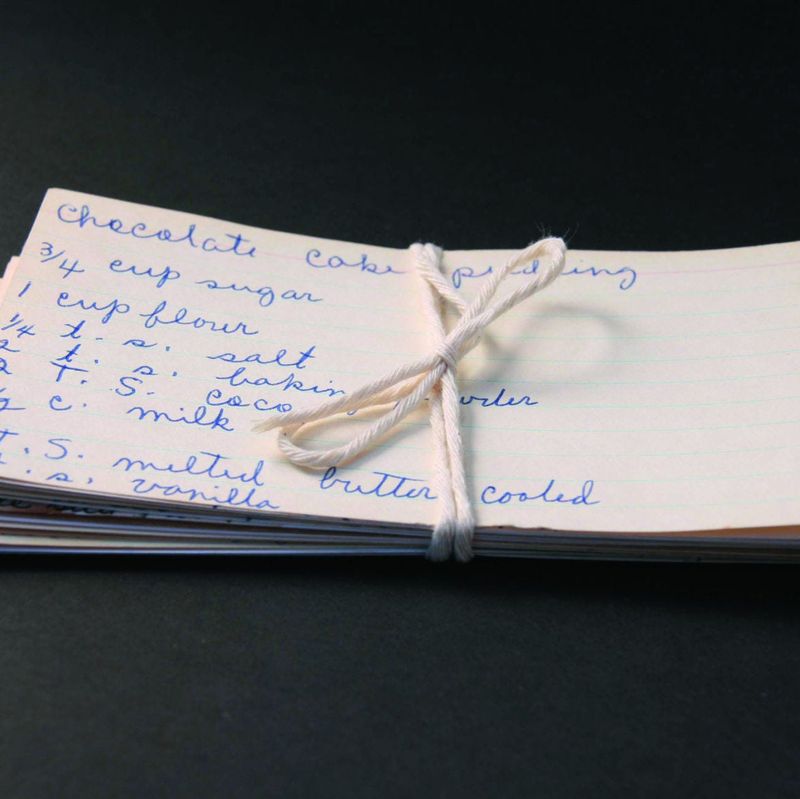 chocolate cake pudding
3/4 cup sugar
1 cup flour
1/4 t. s. salt
2 t. s. baking
2 T. S. coco
c. milk
T. S. melted butter cooled
t. s. vanilla